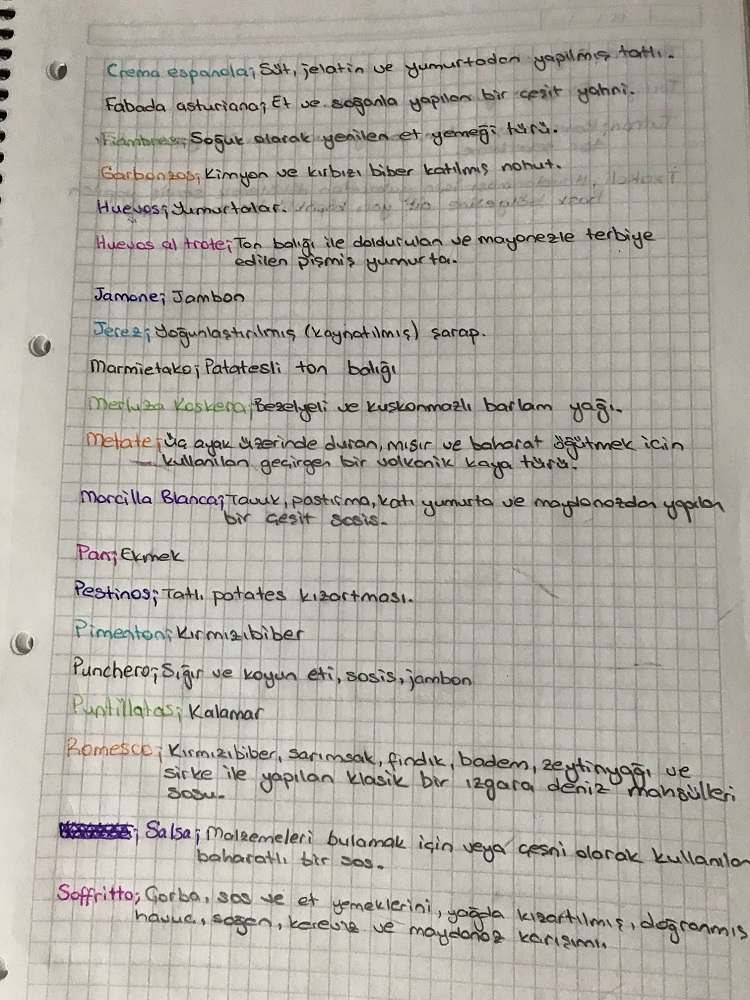 Crema espanola; Süt, jelatin ve yumurtadan yapılmış tatlı.
Fabada asturiana; Et ve soğanla yapılan bir çeşit yahni.
Fiambres; Soğuk olarak yenilen et yemeği türü.
Garbonzos; Kimyon ve kırbızı biber katılmış nohut.
Huevos; Yumurtalar.
Huevos al trote; Ton balığı ile doldurulan ve mayonezle terbiye
edilen pişmiş yumurta.
Jamone; Jambon
Jerez; Yoğunlaştırılmış (kaynatılmış) şarap.
Marmietako; Patatesli ton balığı
Merluza Koskera; Bezelyeli ve kuşkonmazlı barlam yağı.
Metate; Üç ayak üzerinde duran, mısır ve baharat öğütmek için
kullanılan geçirgen bir volkanik kaya türü.
Morcilla Blanca; Tavuk, pastırma, katı yumurta ve maydanozdan yapılan
bir çeşit sosis.
Pan; Ekmek
Pestinos; Tatlı patates kızartması.
Pimenton; Kırmızıbiber
Punchero; Sığır ve koyun eti, sosis, jambon
Puntillatas; Kalamar
Romesco; Kırmızıbiber, sarımsak, fındık, badem, zeytinyağı ve
sirke ile yapılan klasik bir ızgara deniz mahsülleri
sosu.
; Salsa; Malzemeleri bulamak için veya çeşni olarak kullanılan
baharatlı bir sos.
Soffritto; Çorba, sos ve et yemeklerini, yağda kızartılmış, doğranmış
havuç, soğan, kereviz ve maydanoz karışımı.